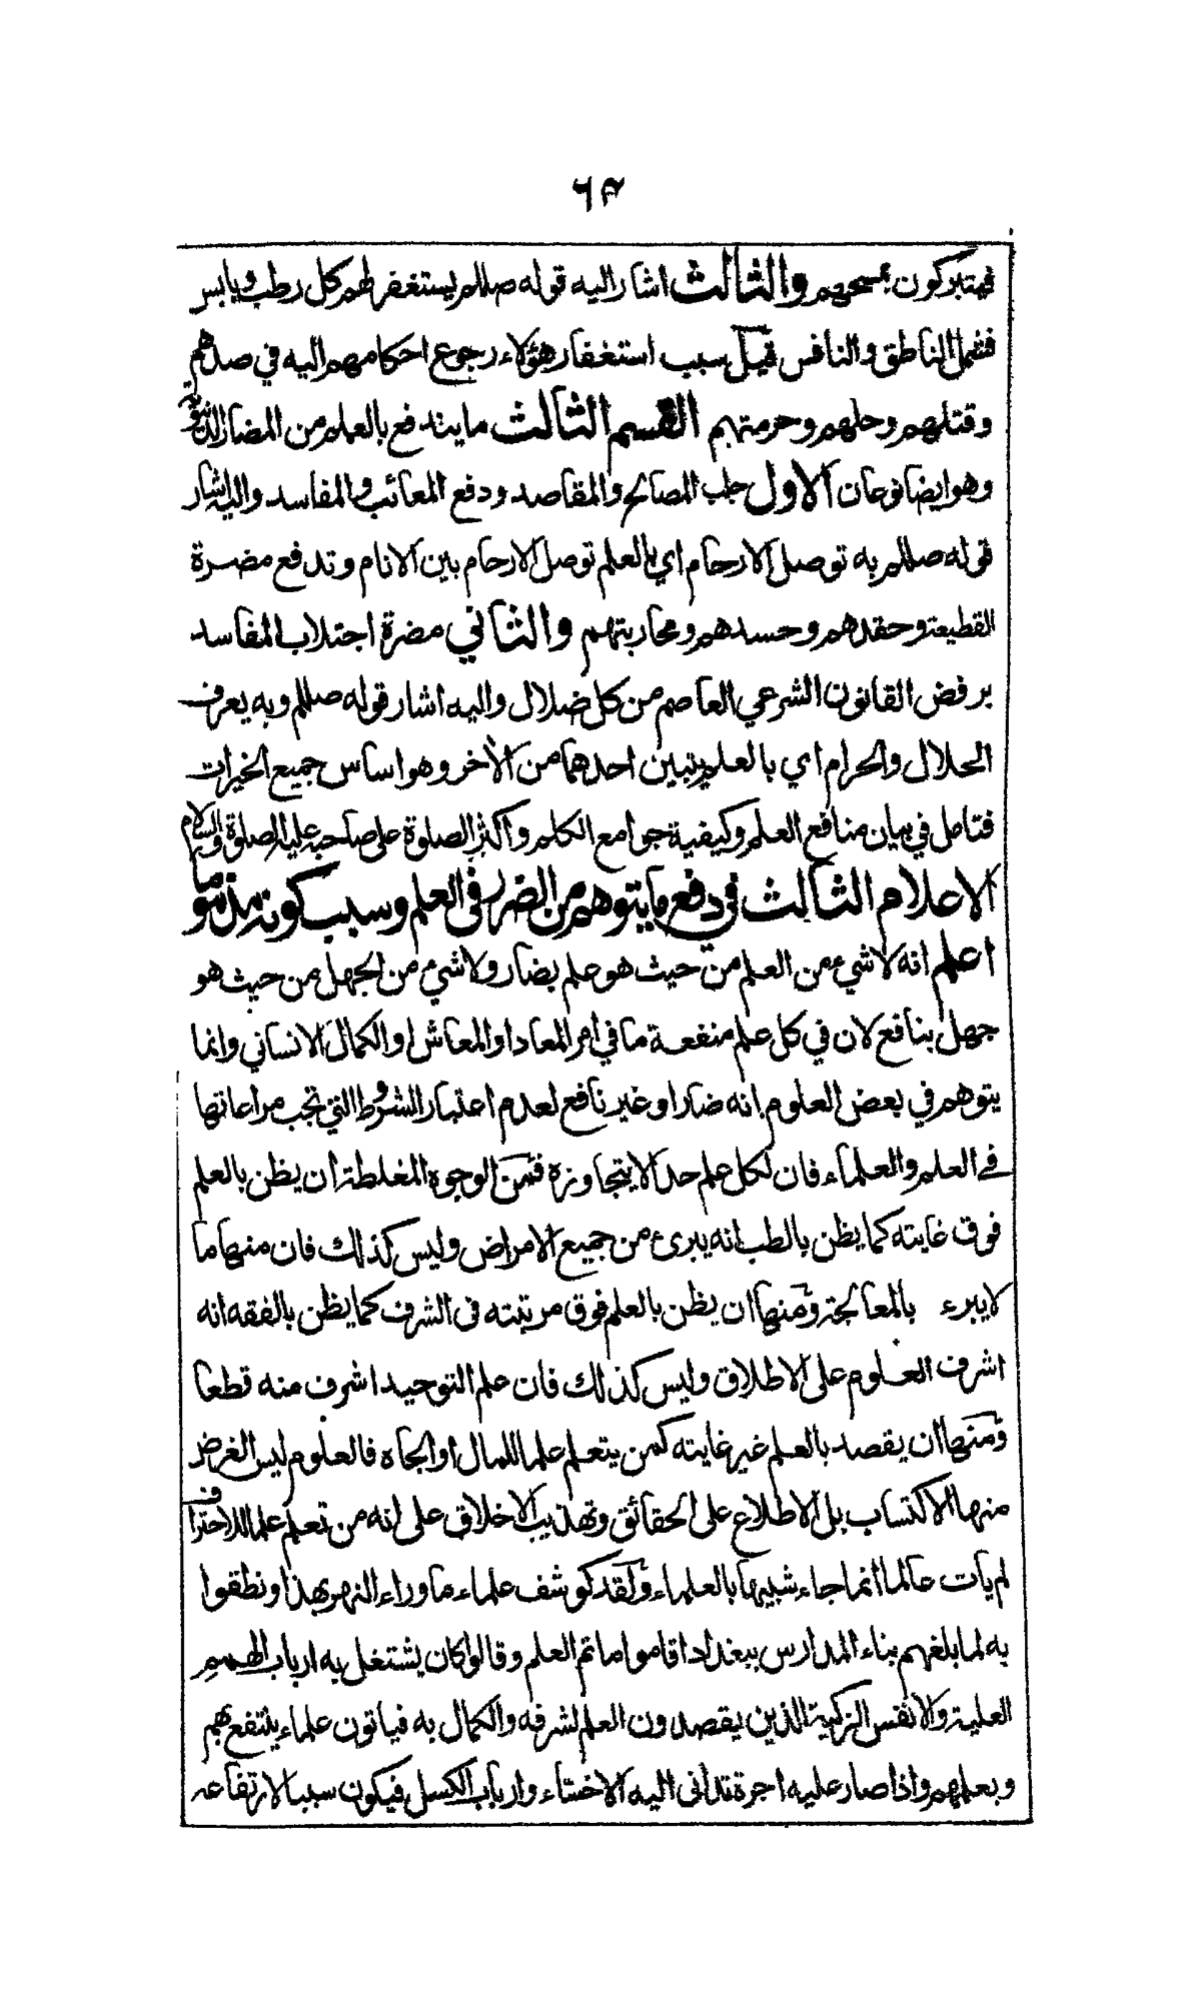 ٦٤
فيتبركون بمسحهم والثالث اشار اليه قوله صللم يستغفر لهم كل رطب ويابس
فشمل الناطق والنافس قيل سبب استغفار هؤلاء رجوع احكامهم اليه في صدهم
وقتلهم وحلهم وحرمتهم القسم الثالث ما يندفع بالعلم من المضار الدنيوية
وهو ايضا نوعان الاول جلب المصالح والمقاصد ودفع المعائب والمفاسد واليه اشار
قوله صللم به توصل الارحام اي بالعلم توصل الارحام بين الانام وتدفع مضرة
القطيعة وحقدهم وحسدهم ومحاربتهم والثاني مضرة اجتلاب المفاسد
برفض القانون الشرعي العاصم من كل ضلال واليه اشار قوله صللم وبه يعرف
الحلال والحرام اي بالعلم يتبين احدهما من الأخر وهو اساس جميع الخيرات
فتامل في بيان منافع العلم وكيفية جوامع الكلم واكثر الصلوة على صاحبه عليه الصلوة والسلام
الاعلام الثالث في دفع ما يتوهم من الضرر في العلم وسبب كونه مذموما
اعلم انه لا شيء من العلم من حيث هو علم بضار ولا شيء من الجهل من حيث هو
جهل بنافع لان في كل علم منفعة ما في امر المعاد او المعاش او الكمال الانساني وانما
يتوهم في بعض العلوم انه ضار او غير نافع لعدم اعتبار الشروط التي تجب مراعاتها
في العلم والعلماء فان لكل علم حد الا يتجاوزه فمن الوجوه المغلطة ان يظن بالعلم
فوق غايته كما يظن بالطب انه يبرئ من جميع الامراض وليس كذلك فان منها ما
لا يبرء بالمعالجة ومنها ان يظن بالعلم فوق مرتبته في الشرف كما يظن بالفقه انه
اشرف العلوم على الاطلاق وليس كذلك فان علم التوحيد اشرف منه قطعا
ومنها ان يقصد بالعلم غير غايته كمن يتعلم علما للمال او الجاه فالعلوم ليس الغرض
منها الاكتساب بل الاطلاع على الحقائق وتهذيب الاخلاق على انه من تعلم علما للاحتراف
لم يات عالما انما جاء شبيها بالعلماء ولقد كوشف علماء ما وراء النهر بهذا ونطقوا
به لما بلغهم بناء المدارس ببغداد اقاموا ماتم العلم وقالوا كان يشتغل به ارباب الهمم
العلية والانفس الزكية الذين يقصدون العلم لشرفه والكمال به فياتون علماء ينتفع بهم
وبعلمهم واذا صار عليه اجرة تدانى اليه الاخساء وارباب الكسل فيكون سببا لارتفاعه